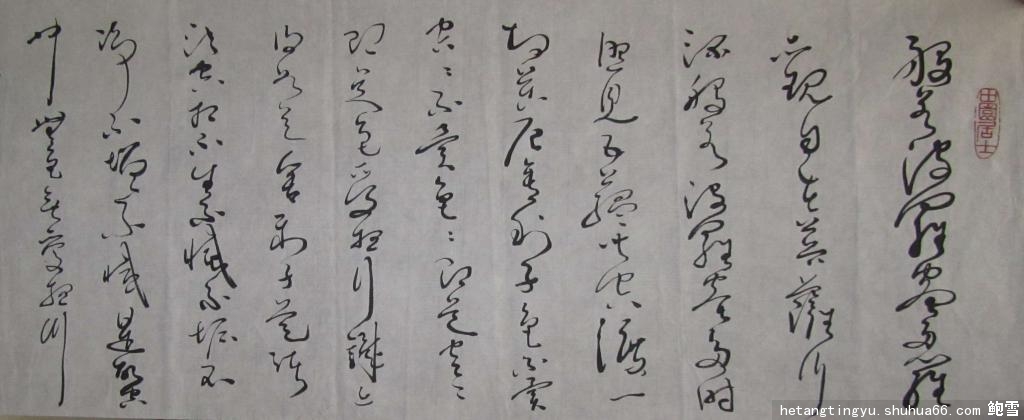 般若波羅蜜多心經
觀自在菩薩行
深般若波羅蜜多時
照見五蘊皆空度一
切苦厄舍利子色不異
空〻不異色〻即是空〻
即是色受想行識亦
復如是舍利子是諸
法空相不生不滅不垢不
淨不垢不滅是故空
中無色無受想行
田園居士
hetangtingyu.shuhua66.com 鲍雪